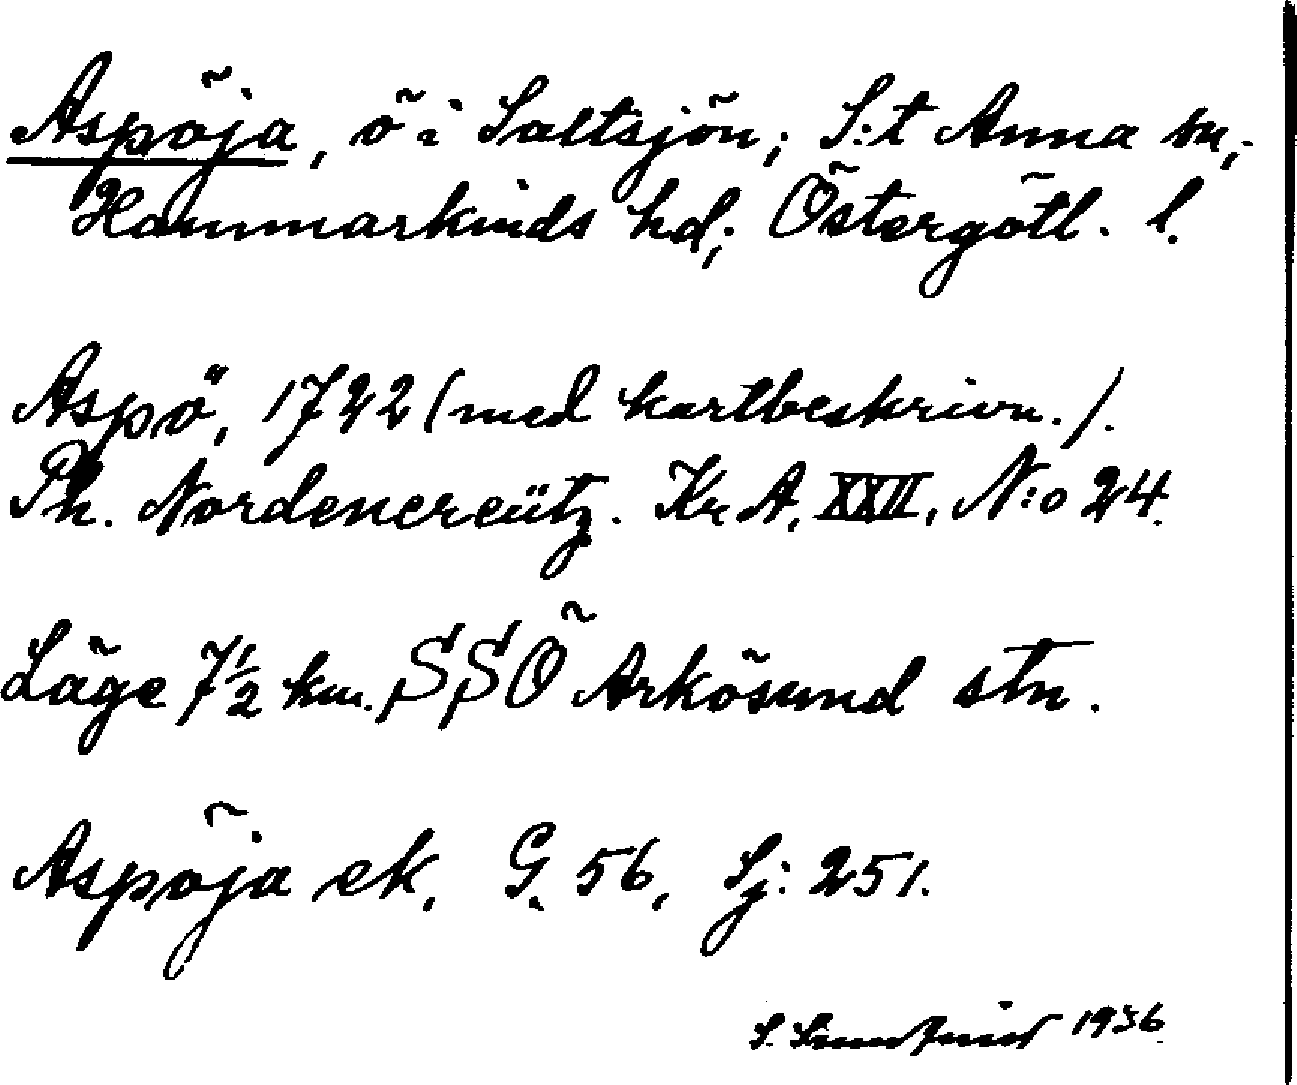 Aspöja, ö i Saltsjön; S:t Anna sn;
Hammarkinds hd; Östergötl. l.
Aspö, 1722 (med kartbeskrivn.).
Ph. Nordencreütz. Kr A, XXII, N:o 24.
Läge 7½ km. SSÖ Arkösund stn.
Aspöja ek. G. 56, Sj: 251.
S. 1936